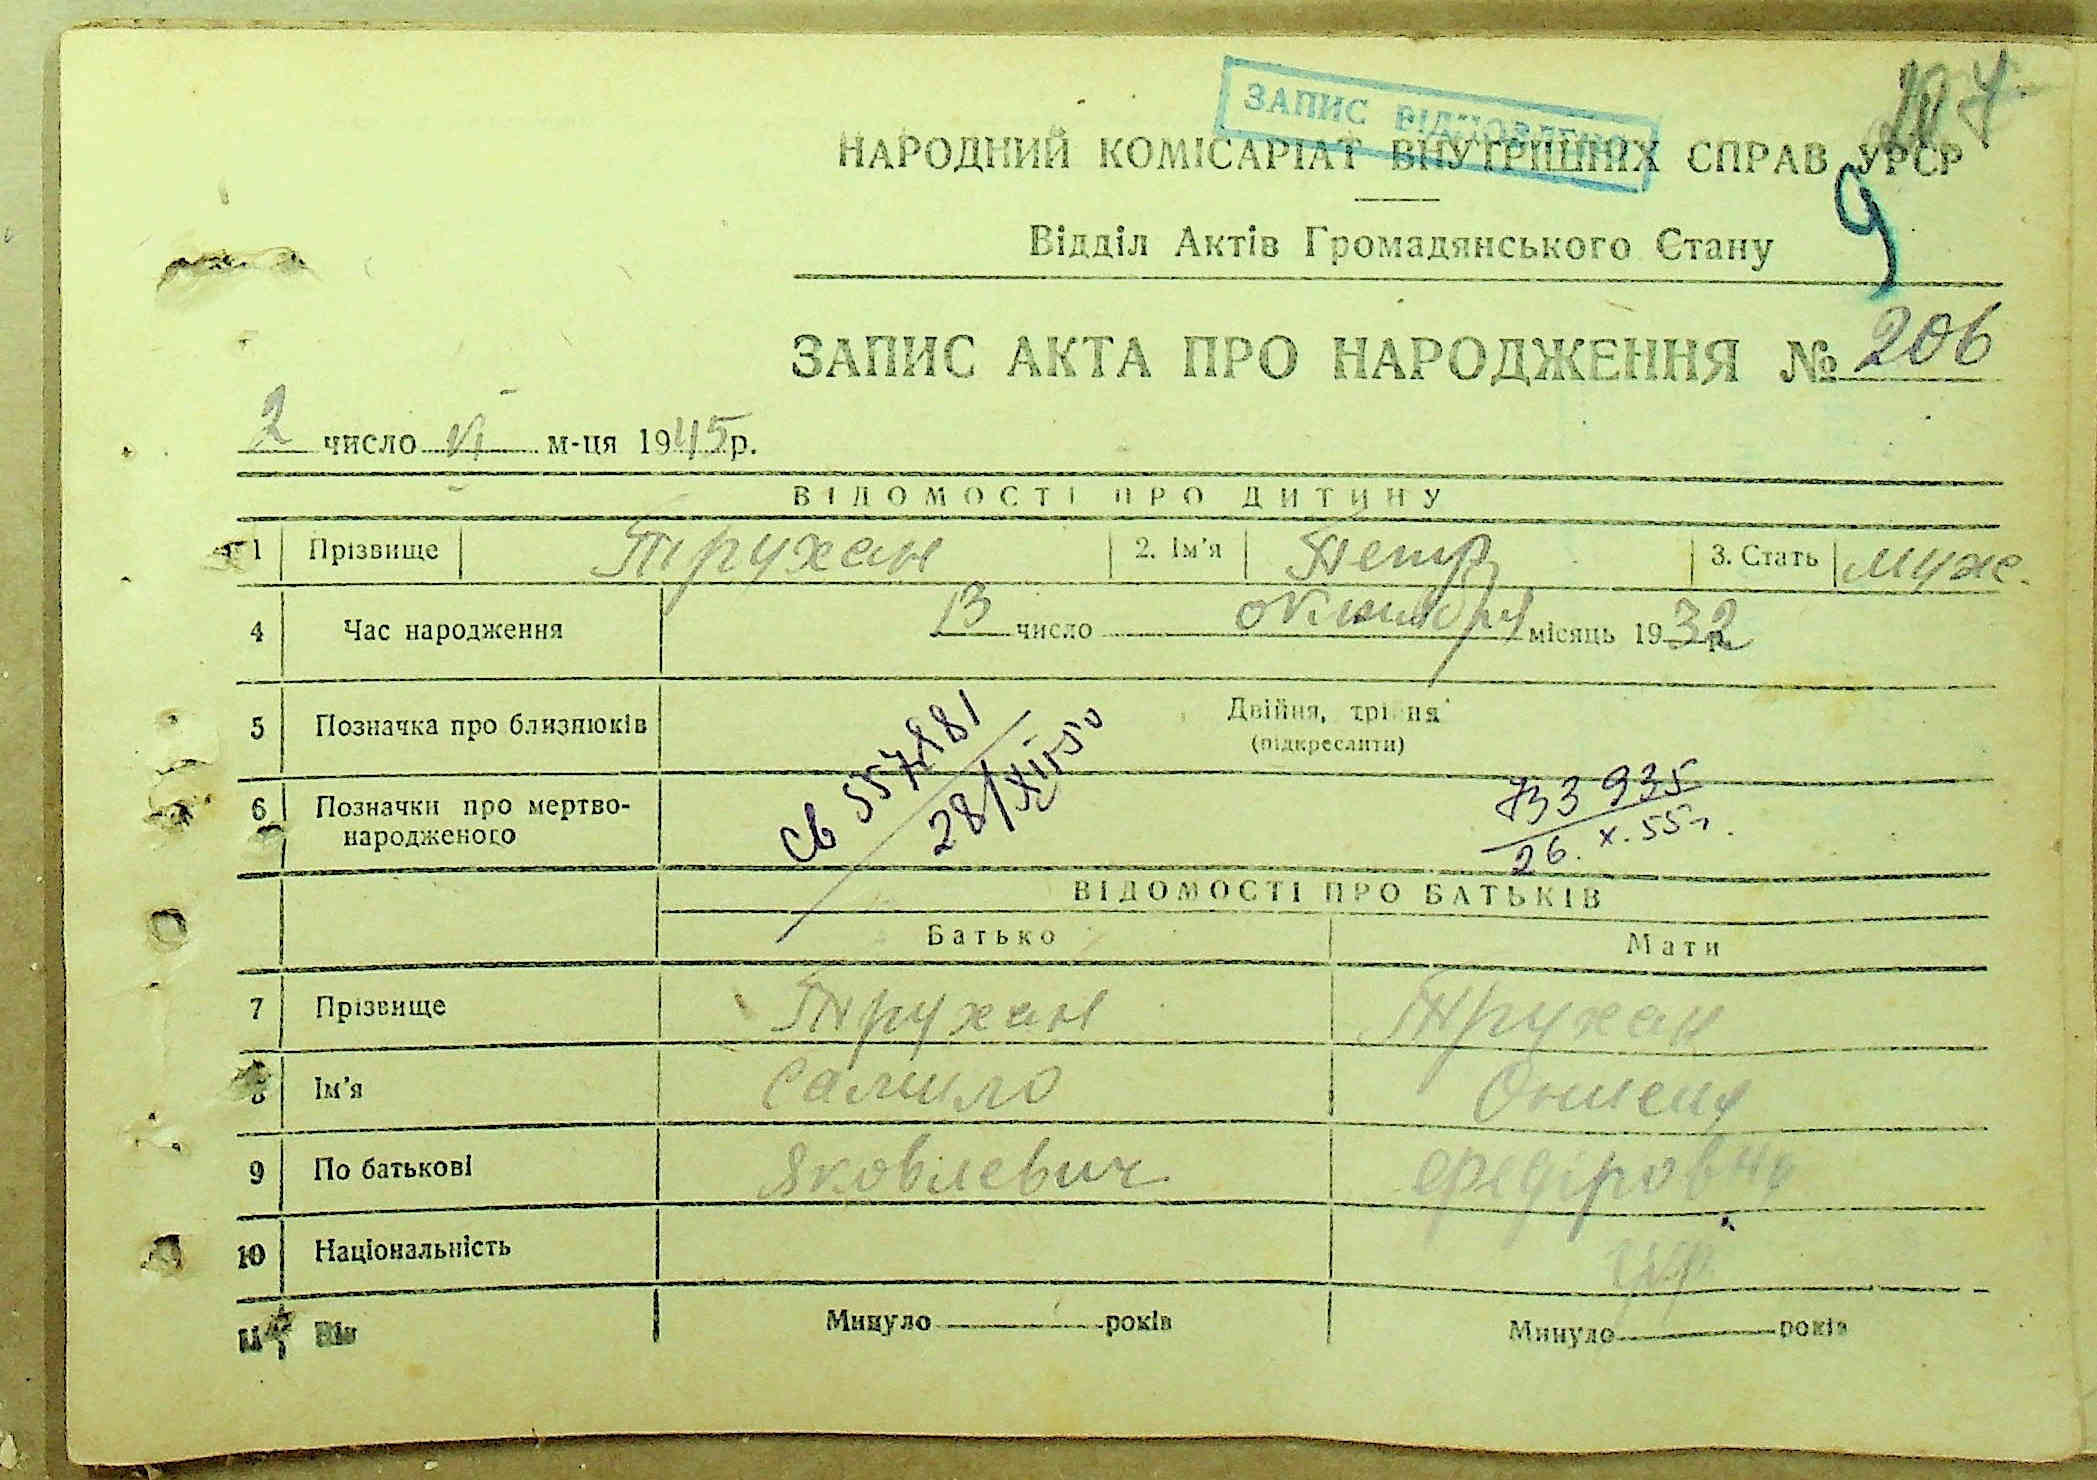 ЗАПИС ВІДНОВЛЕНО
НАРОДНИЙ КОМІСАРІАТ ВНУТРІШНІХ СПРАВ УРСР
9
Відділ Актів Громадянського Стану
ЗАПИС АКТА ПРО НАРОДЖЕННЯ № 206
2 число VI м-ця 1945 р.
ВІДОМОСТІ ПРО ДИТИНУ
1 Прізвище Трухан 2. Ім'я Петр 3. Стать муж.
4 Час народження 13 число октября місяць 1932 р.
5 Позначка про близнюків Двійня, трійня
(підкреслити)
6 Позначки про мертво-
народженого
св 557881
28/XII-50
733935
26. X. 55 г.
ВІДОМОСТІ ПРО БАТЬКІВ
Батько Мати
7 Прізвище Трухан Трухан
8 Ім'я Самило
9 По батькові Яковлевич Федіровна
10 Національність укр
11 Вік Минуло років Минуло років